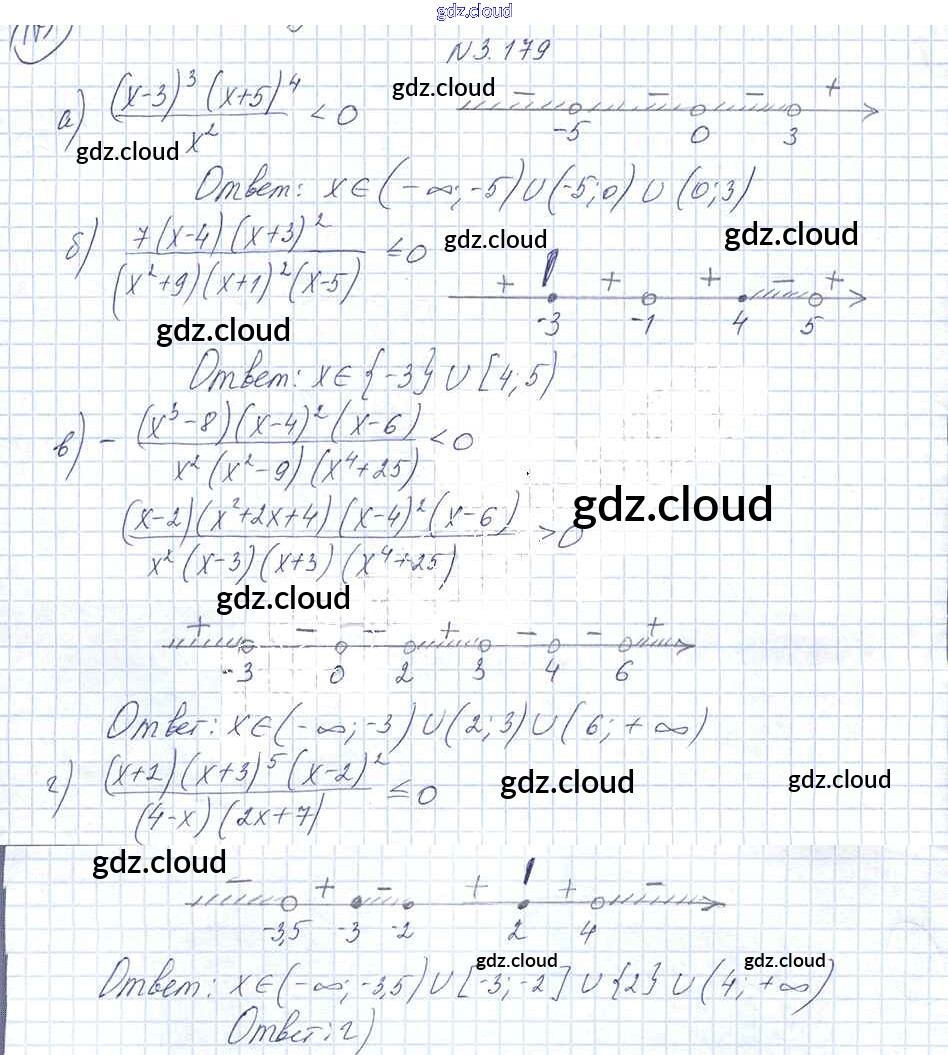 gdz.cloud
N 3.179
а) (x-3)³(x+5)⁴ / x² < 0
gdz.cloud
- - - +
-5 0 3
gdz.cloud
Ответ: x∈(-∞;-5)∪(-5;0)∪(0;3)
б) 7(x-4)(x+3)² / (x²+9)(x+1)²(x-5) ≤0
gdz.cloud
gdz.cloud
+ + + - +
-3 -1 4 5
gdz.cloud
Ответ: x∈{-3}∪[4;5)
в) - (x³-8)(x-4)²(x-6) / x²(x²-9)(x⁴+25) <0
(x-2)(x²+2x+4)(x-4)²(x-6) / x²(x-3)(x+3)(x⁴+25) >0
gdz.cloud
gdz.cloud
+ - - + - - +
-3 0 2 3 4 6
Ответ: x∈(-∞;-3)∪(2;3)∪(6;+∞)
г) (x+2)(x+3)⁵(x-2)² / (4-x)(2x+7) ≤0
gdz.cloud
gdz.cloud
gdz.cloud
- + - + ! + -
-3,5 -3 -2 2 4
gdz.cloud
gdz.cloud
Ответ: x∈(-∞;-3,5)∪[-3;-2]∪{2}∪(4;+∞)
Ответ: г)